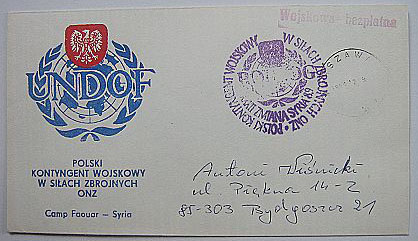 Wojskowa - bezpłatna
UNDOF
POLSKI KONTYNGENT WOJSKOWY W SIŁACH ZBROJNYCH ONZ
POLSKI
KONTYNGENT WOJSKOWY
W SIŁACH ZBROJNYCH
ONZ
Camp Faouar — Syria
Antoni
ul. Piękna 14-2
85-303 Bydgoszcz 21